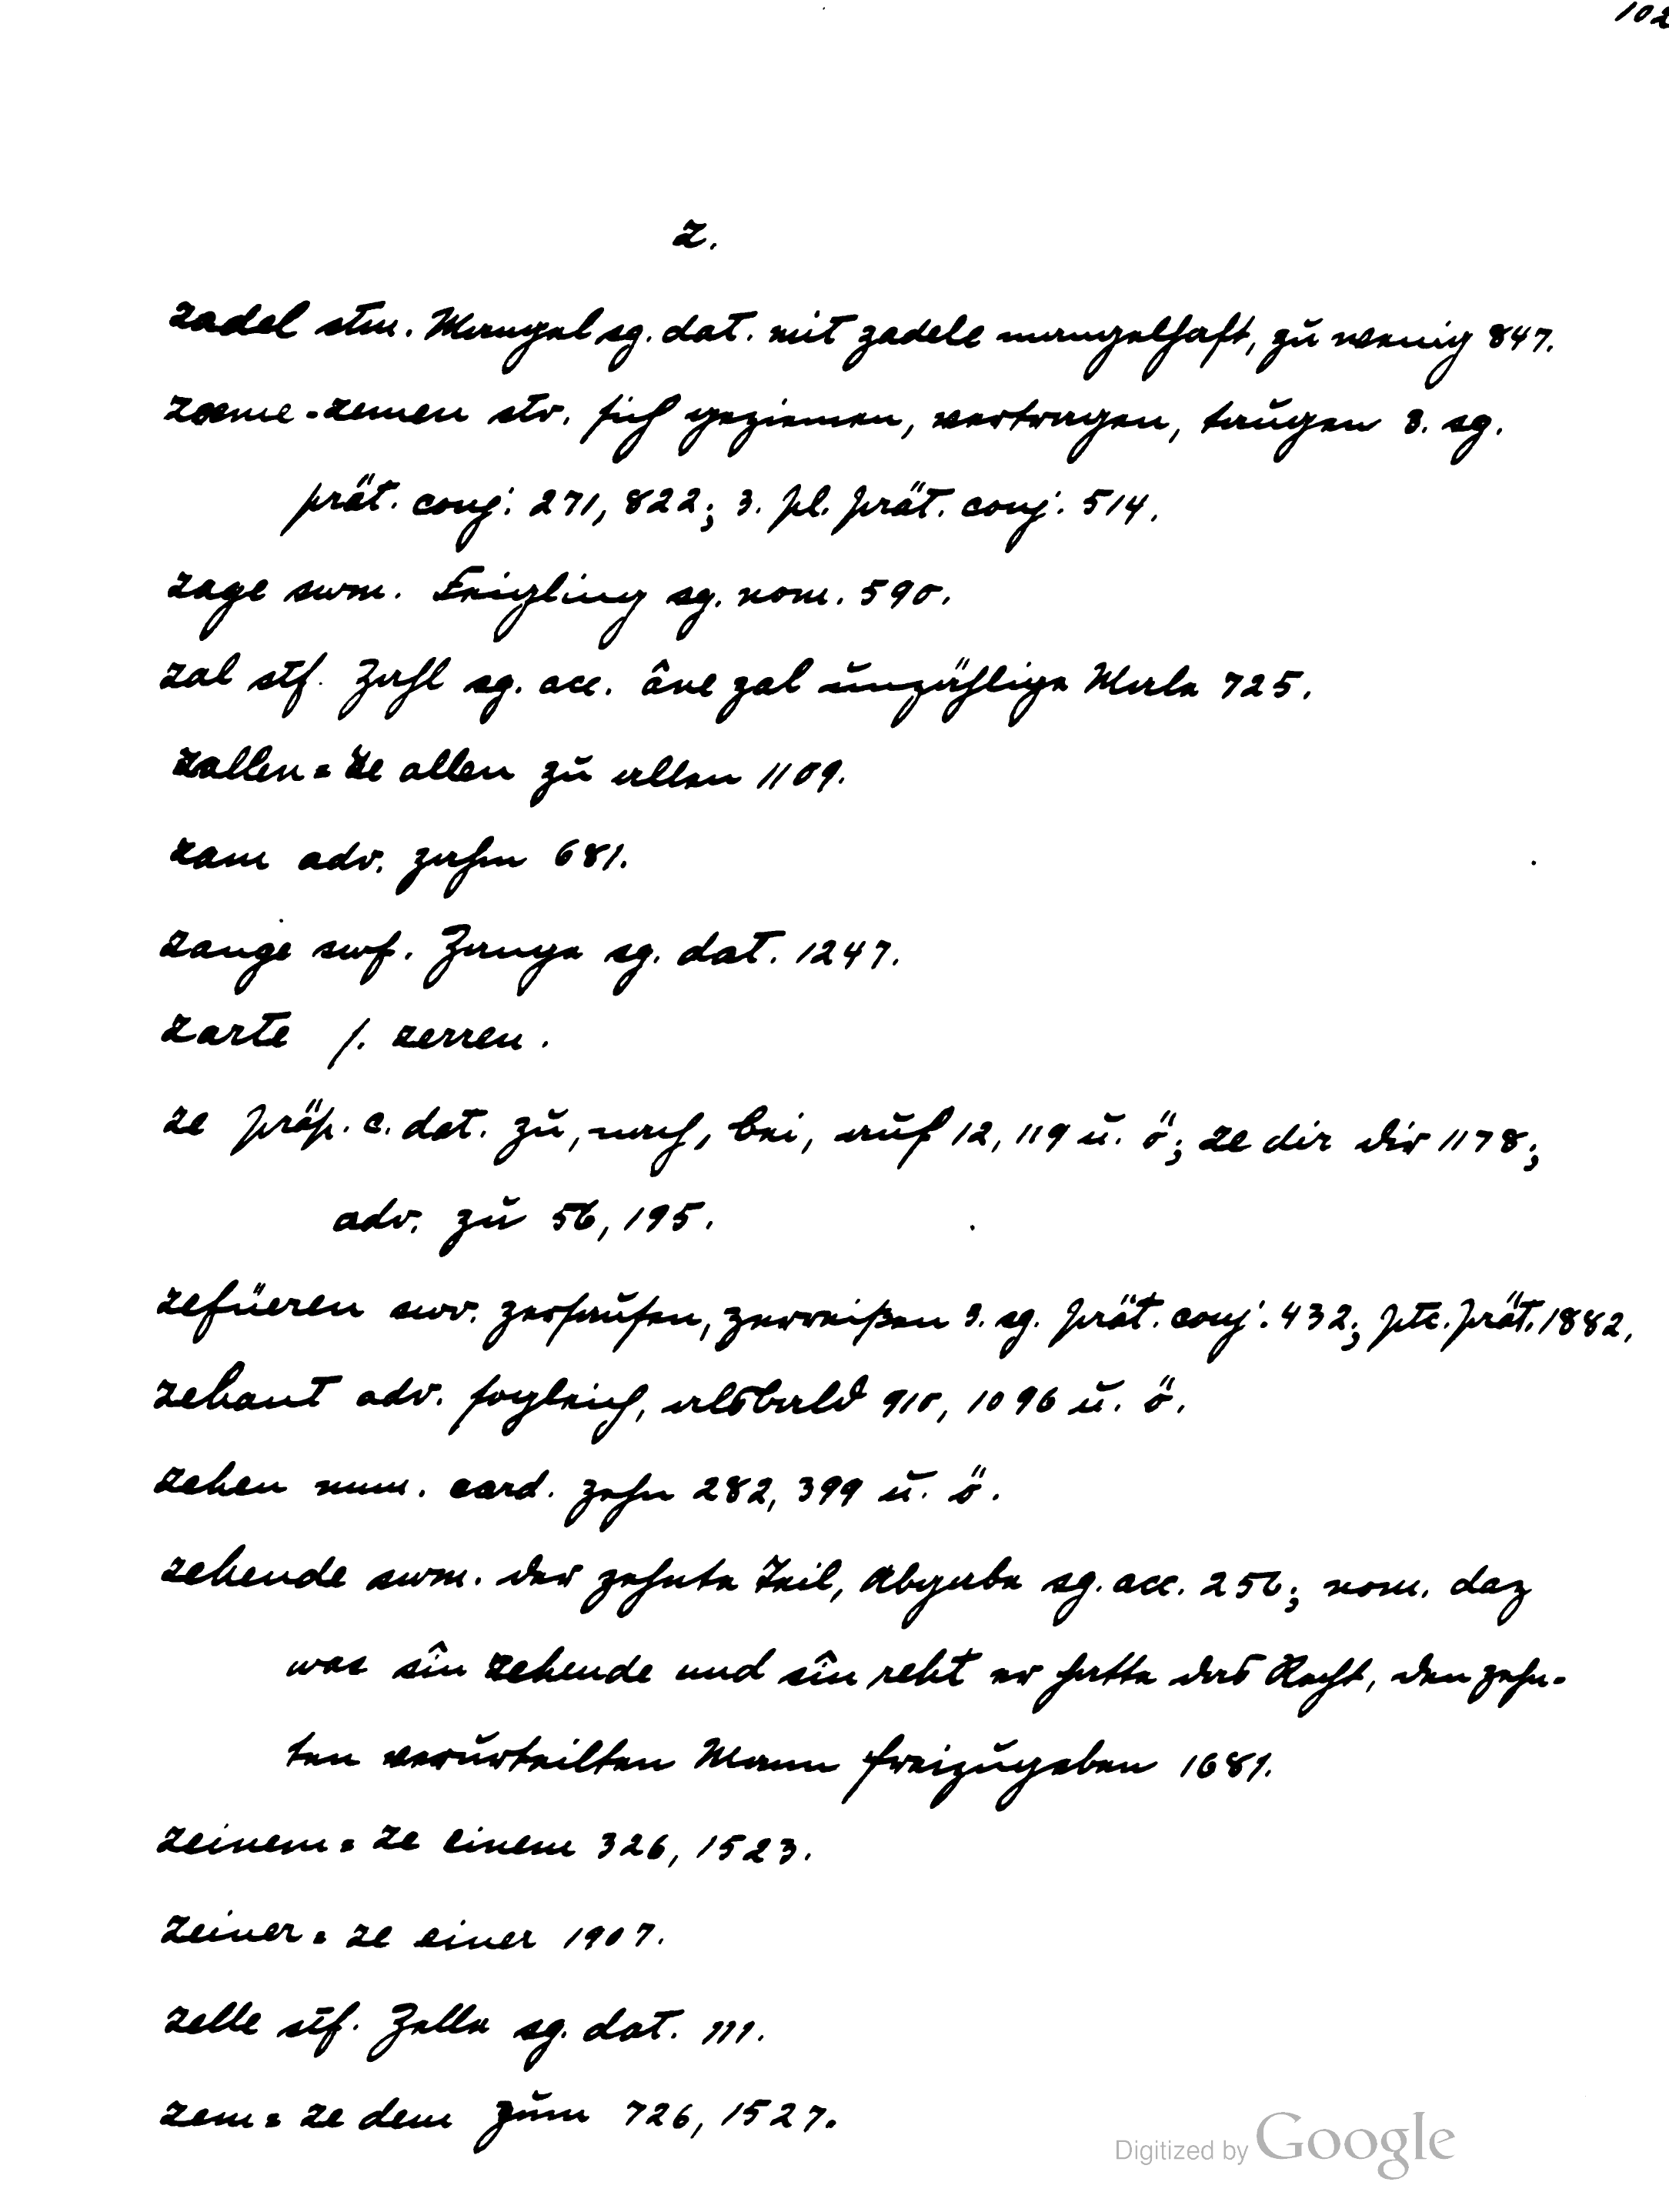 102
z.
zadel stm. Mangel sg. dat. mit zadele mangelhaft, zu wenig 847.
zaeme-zemen stv. sich geziemen, vertragen, taugen 3. sg.
prät. conj. 271, 822; 3. pl. prät. conj. 514.
zage swm. Feigling sg. nom. 590.
zal stf. Zahl sg. acc. âne zal unzählige Male 725.
zallen = ze allen zu allen 1109.
zam adv. zahm 681.
zange swf. Zange sg. dat. 1247.
zarte s. zerren.
ze präp. c. dat. zu, nach, bei, auf 12, 119 u. ö; ze dir dir 1178;
adv. zu 56, 195.
zefüeren swv. zerhaufen, zerreißen 3. sg. prät. conj. 432; ptc. prät. 1882.
zehant adv. sogleich, alsbald 910, 1096 u. ö.
zehen num. card. zehn 282, 399 u. ö.
zehende swm. der zehnte Teil, Abgabe sg. acc. 256; nom. daz
was sîn zehende und sîn reht er hatte das Recht, den zehn-
ten verurteilten Mann freizugeben 1681.
zeinem = ze einem 326, 1523.
zeiner = ze einer 1907.
zelle stf. Zelle sg. dat. 111.
zem = ze dem zum 726, 1527.
Digitized by Google